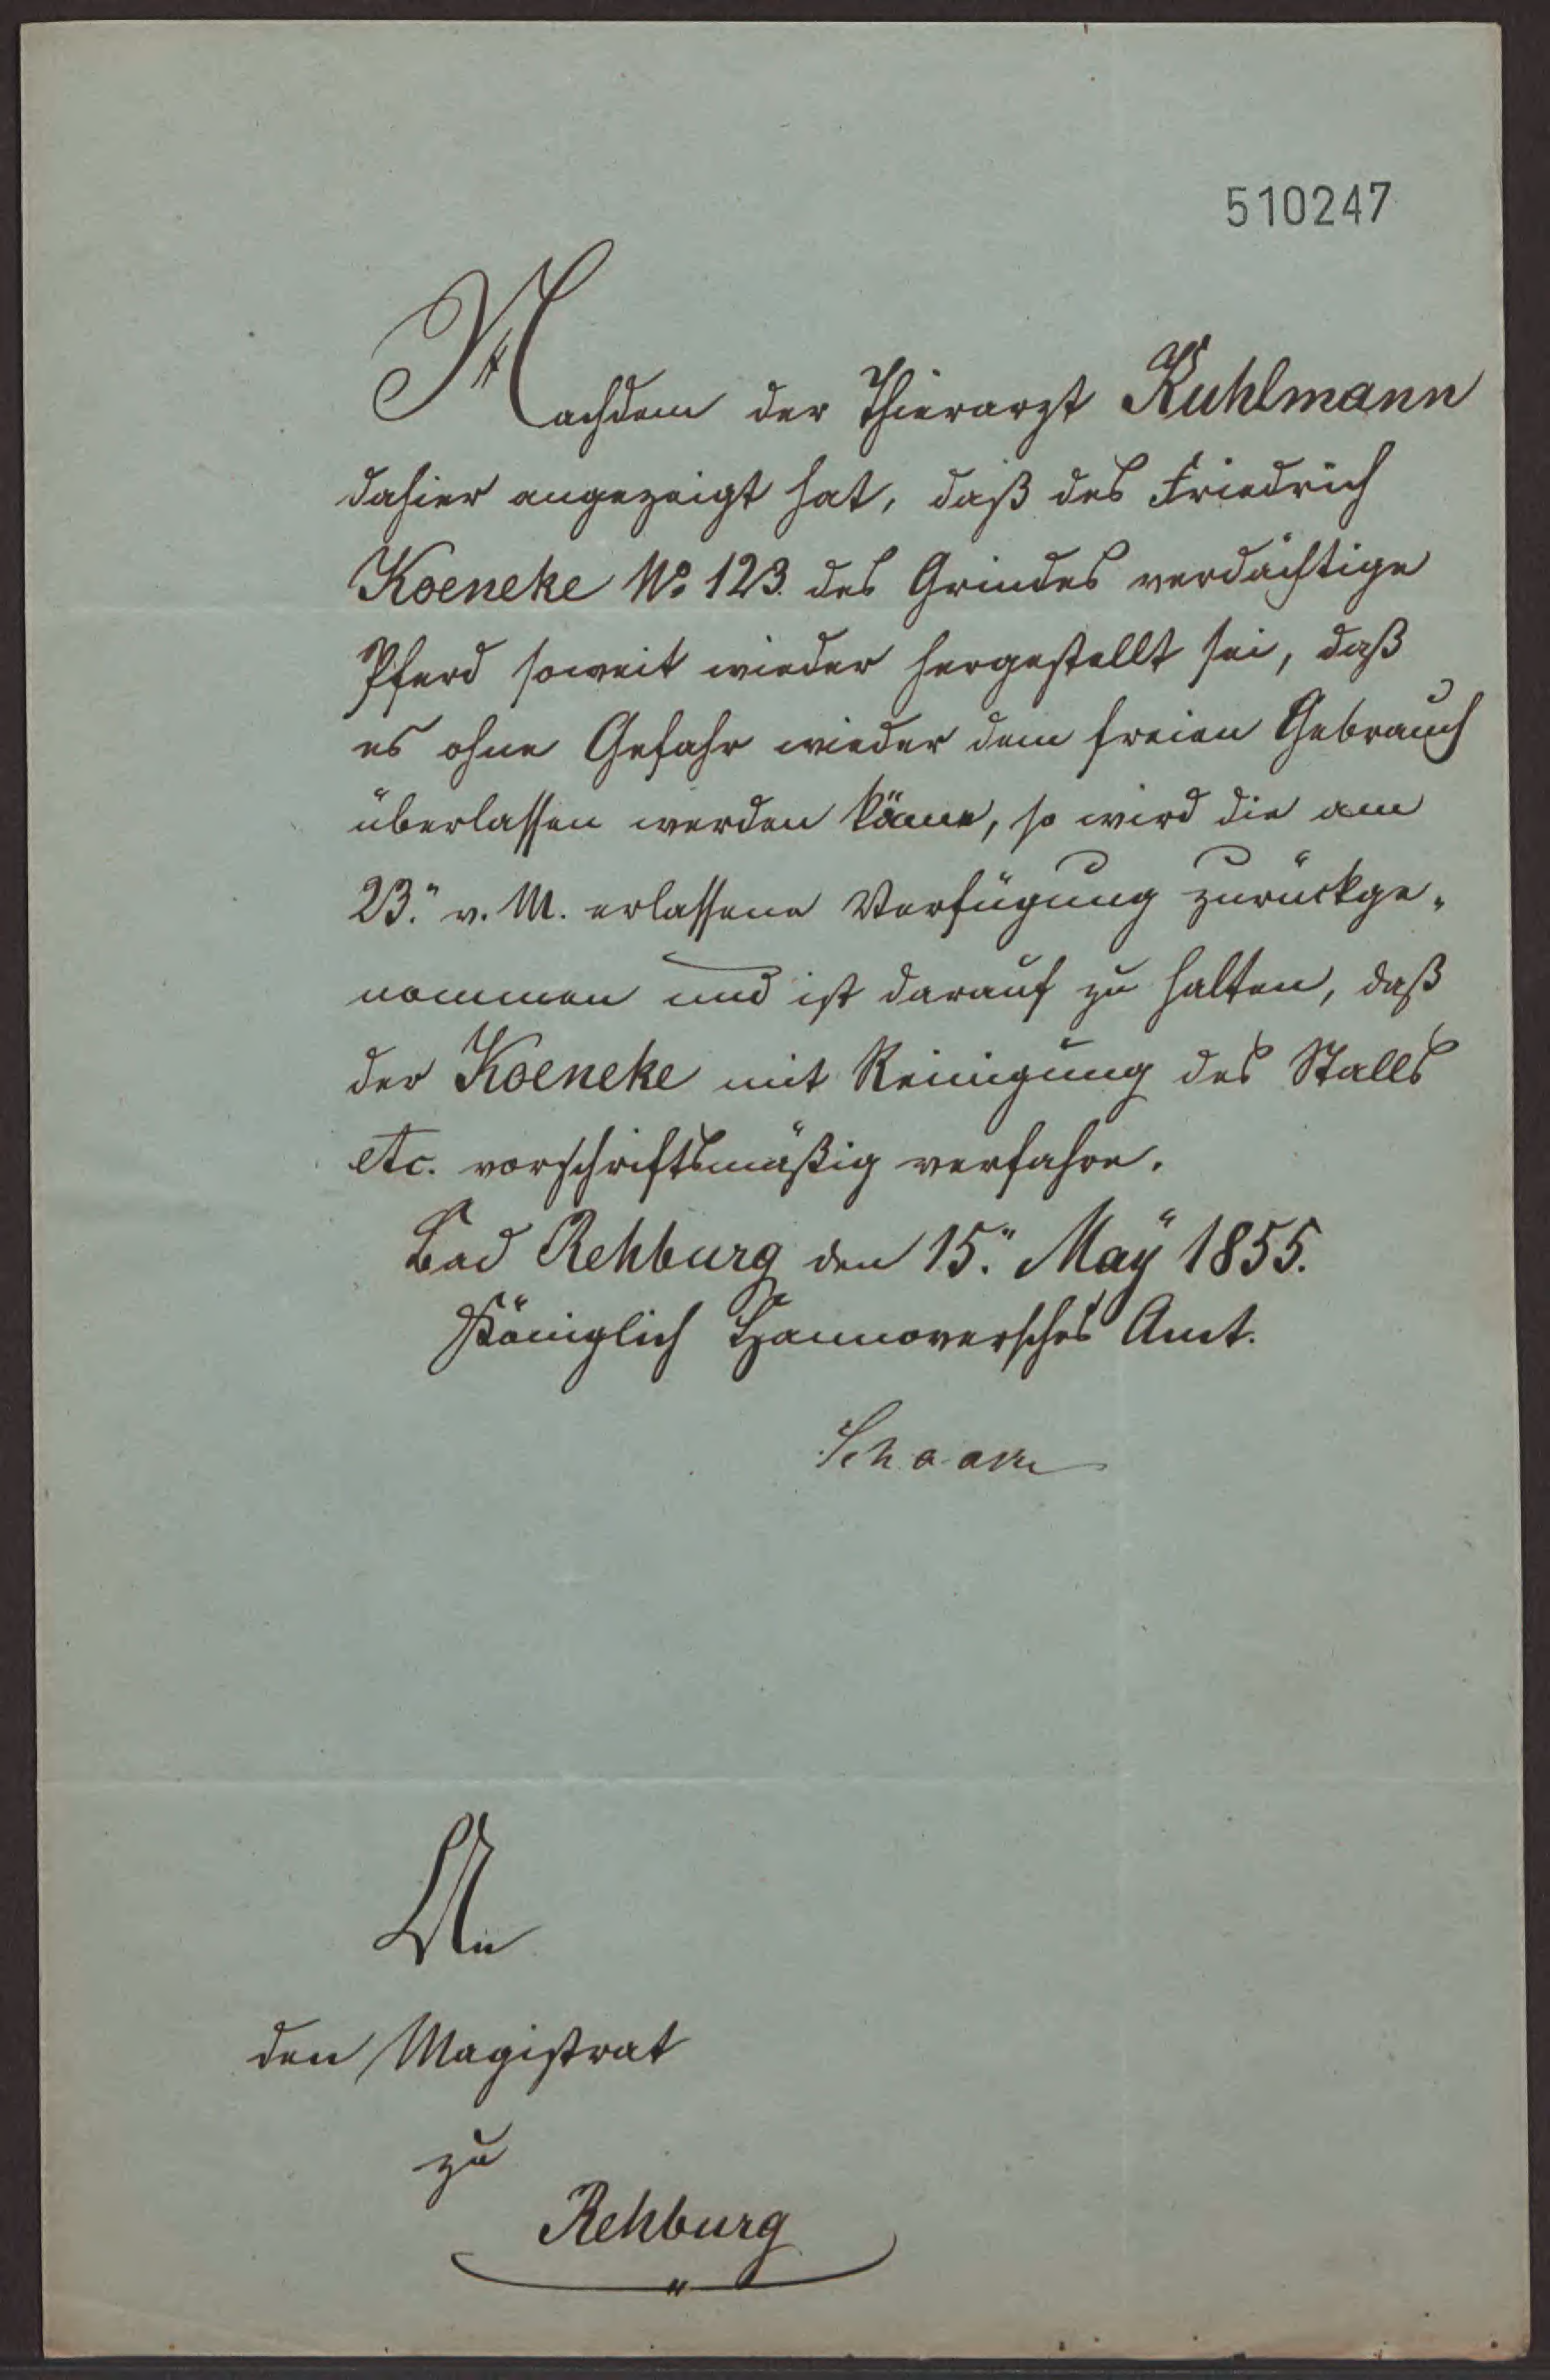 510247
Nachdem der Thierarzt Kuhlmann
dahier angezeigt hat, daß des Friedrich
Koeneke No 123. des Grindes verdächtige
Pferd soweit wieder hergestellt sei, daß
es ohne Gefahr wieder dem freien Gebrauch
überlassen werden könne, so wird die am
23." v. M. erlassene Verfügung zurückge-
nommen und ist darauf zu halten, daß
der Koeneke mit Reinigung des Stalls
etc. vorschriftsmäßig verfahre.
Bad Rehburg den 15." May 1855.
Königlich Hannoversches Amt.
An
den Magistrat
zu
Rehburg